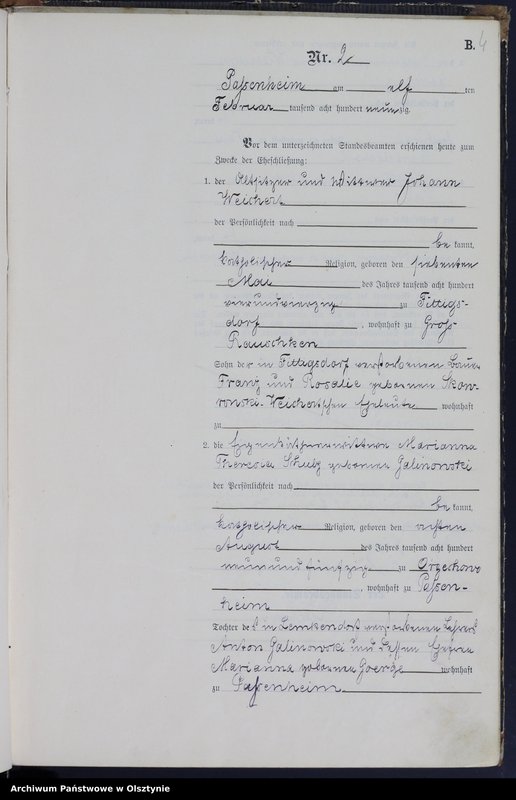 B. 4
Nr. 2
Passenheim am elf ten
Februar tausend acht hundert neunzig
Vor dem unterzeichneten Standesbeamten erschienen heute zum
Zwecke der Eheschließung:
1. der Altsitzer und Wittwer Johann
Weichert
der Persönlichkeit nach
be kannt,
katholischer Religion, geboren den siebenten
Mai des Jahres tausend acht hundert
vierundvierzig zu Fittigs-
dorf, wohnhaft zu Groß
Rauschken
Sohn der in Fittigsdorf verstorbenen Bauer
Franz und Rosalie geborenen Skow-
ronski-Weichertschen Eheleute wohnhaft
zu
2. die Eigenkäthnerwittwe Marianna
Theresia Schulz geborene Galinowski
der Persönlichkeit nach
be kannt,
katholischer Religion, geboren den achten
August des Jahres tausend acht hundert
neunundfünfzig zu Orzechowo
, wohnhaft zu Passen-
heim
Tochter des in Lemkendorf verstorbenen Lehrers
Anton Galinowski und dessen Ehefrau
Marianna geborene Goerge wohnhaft
zu Passenheim
Archiwum Państwowe w Olsztynie